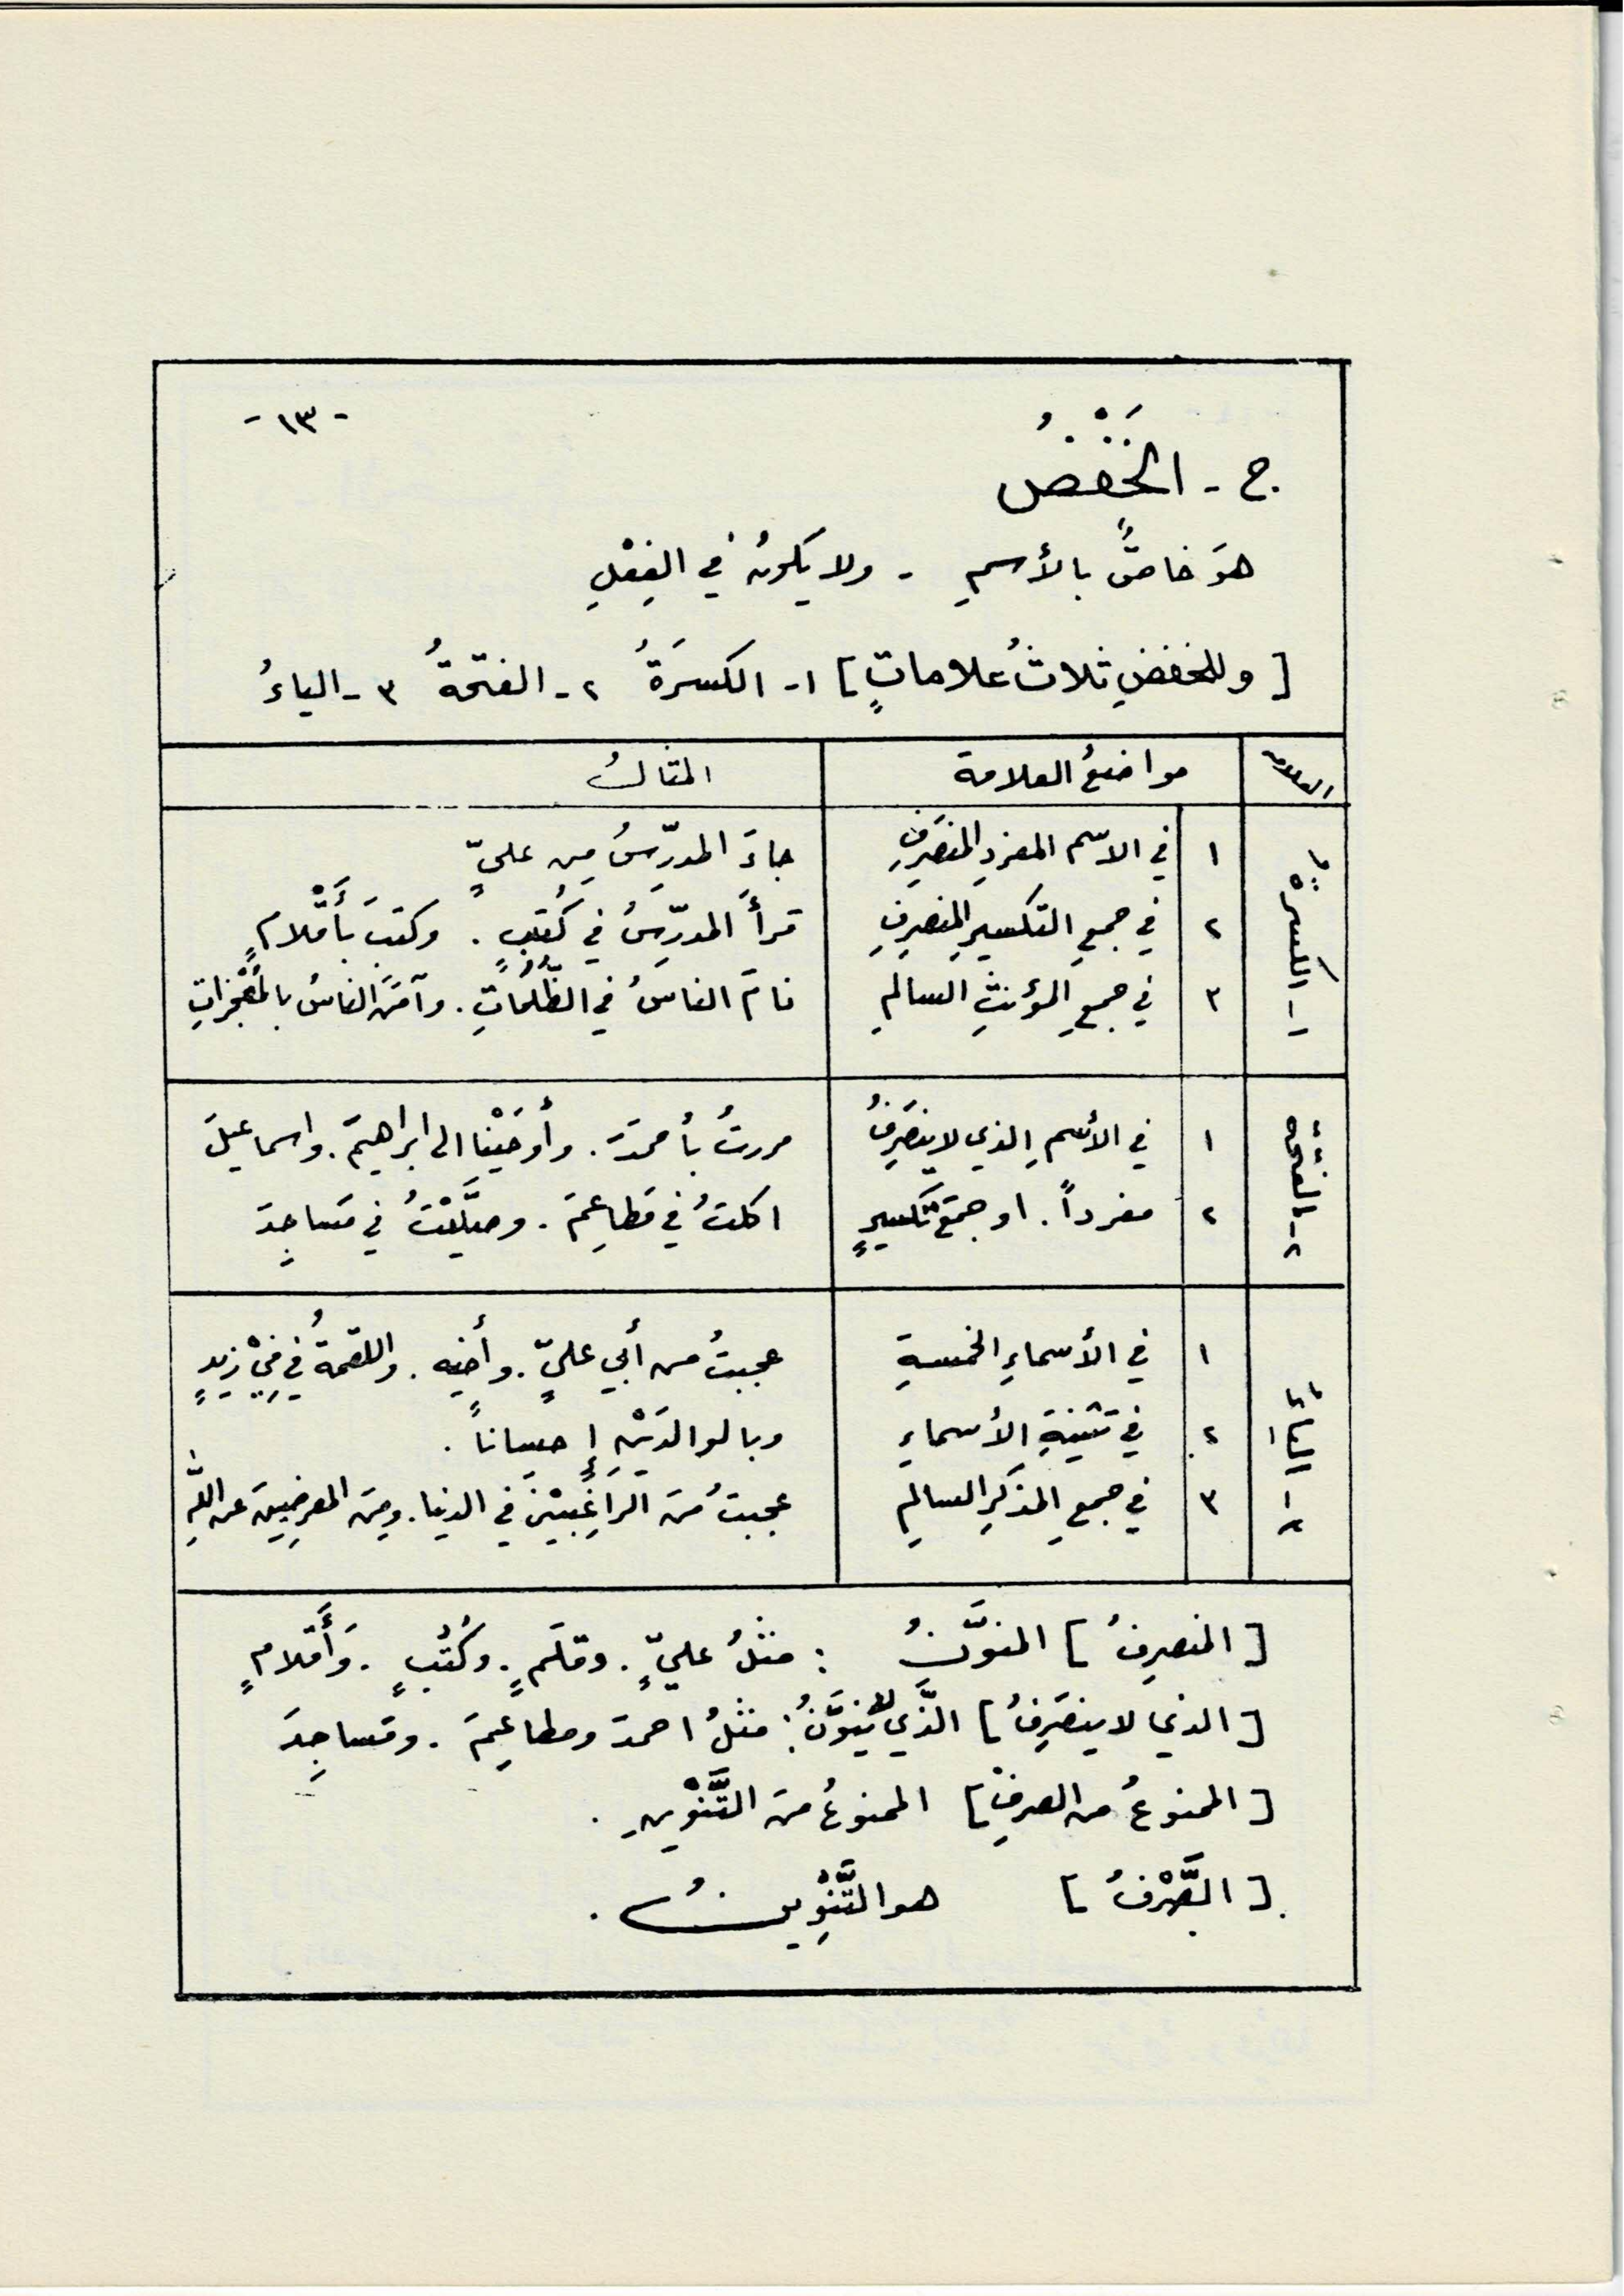 - ١٣ -
ج - الخَفْضُ
هوَ خاصٌّ بالأسمِ - ولا يَكونُ في الفِعْلِ
[ وللخفضِ ثلاثُ علاماتٍ ] ١- الكسرَةُ ٢- الفتحةُ ٣- الياءُ
العلامة | مواضعُ العلامة | المثالُ
١ - الكسرةُ
١ | في الاسم المفردِ المنصَرِفِ | جاءَ المدرّسُ مِن عليٍّ
٢ | في جمعِ التكسيرِ المنصرِفِ | قرأَ المدرّسُ في كُتبٍ . وكتبَ بأَقْلامٍ
٣ | في جمعِ المؤنثِ السالمِ | نامَ الناسُ في الظُّلُمَاتِ . وآمَنَ الناسُ بالمُعْجزاتِ
٢ - الفتحة
١ | في الأسمِ الذي لا ينصَرِفُ | مررتُ بأحمدَ . وأوحَيْنا الى ابراهيمَ . واسماعيلَ
٢ | مفرداً . او جمعَ تكسيرٍ | اكلتُ في مَطاعِمَ . وصلَّيْتُ في مَساجِدَ
٣ - الياءُ
١ | في الأسماءِ الخمسةِ | عجبتُ من أبي عليٍّ . وأخيه . واللقمةُ في فِيْ زيدٍ
٢ | في تثنيةِ الأسماءِ | وبالوالدَيْنِ إحساناً .
٣ | في جمعِ المذكرِ السالمِ | عجبتُ منَ الرَاغِبيْنَ في الدنيا . ومِنَ المعرضِينَ عن اللَّهِ
[ المنصرِفُ ] المنوَّنُ : مثلُ عليٍّ . وقلَمٍ . وكُتُبٍ . وَأَقلامٍ
[ الذي لا ينصَرِفُ ] الَّذي لا يُنوَّنُ : مثلُ احمدَ ومطاعِمَ . ومَساجِدَ
[ الممنوعُ من الصرفِ ] الممنوعُ منَ التَّنْوْينِ .
[ الصَّرْفُ ] هو التَّنْوِينُ .